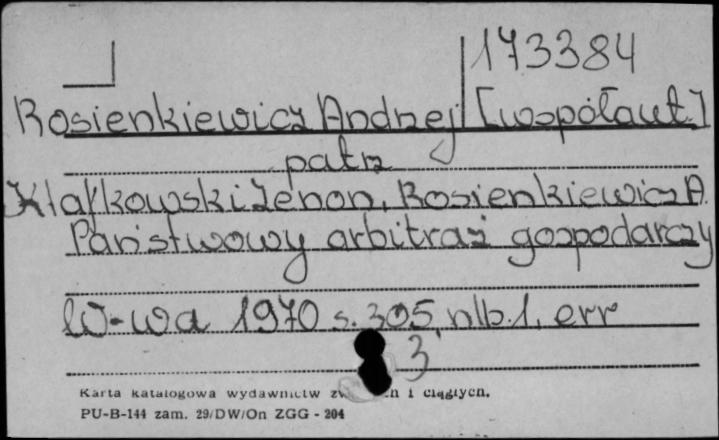 173384
Rosienkiewicz Andrzej [współaut.]
patrz
Klafkowski Zenon, Rosienkiewicz A.
Państwowy arbitraż gospodarczy
W-wa 1970 s. 305, nlb. 1, err
3
Karta katalogowa wydawnictw i ciągłych.
PU-B-144 zam. 29/DW/On ZGG - 204